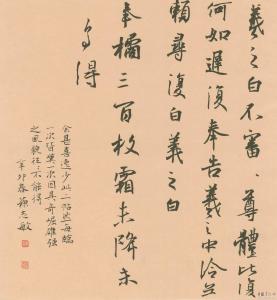 羲之白不審尊體比復
何如遲復奉告羲之中冷無
賴尋復白羲之白
奉橘三百枚霜未降未
可多得
余甚喜逸少此二帖每臨
一次皆
之風貌往往不能得
辛卯春 志敏